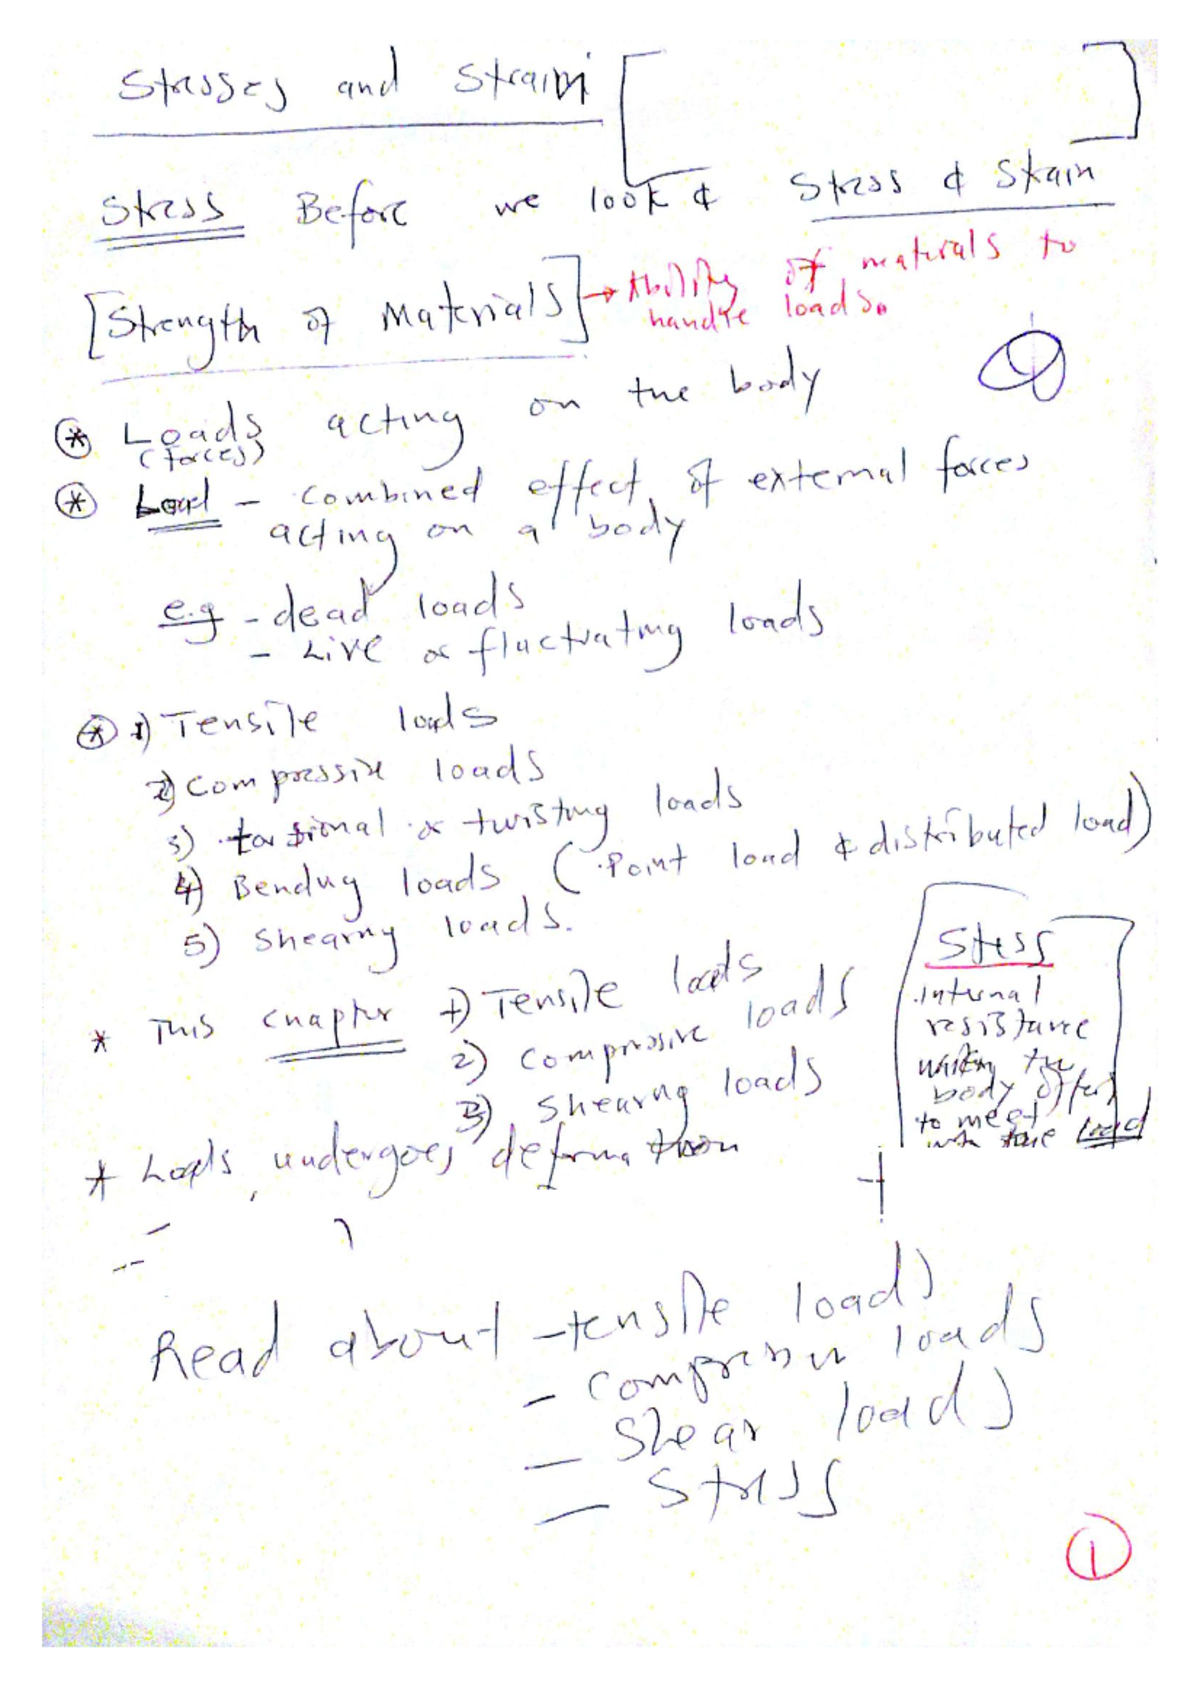 Stresses and Strain
Stress Before we look & Stress & Strain
[Strength of Materials] → Ability of materials to
handle loads.
* Loads acting on the body
(forces)
* Load - combined effect of external forces
acting on a body
e.g - dead loads
- Live or fluctuating loads
* 1) Tensile loads
2) Compressive loads
3) torsional or twisting loads
4) Bending loads (Point load & distributed load)
5) Shearing loads.
* This chapter 1) Tensile loads
2) compressive loads
3) Shearing loads
* Loads undergoes deformation
Stress
internal
resistance
the
body offers
to meet
with the load
Read about - tensile loads
- compressive loads
- Shear loads
- Stress
1